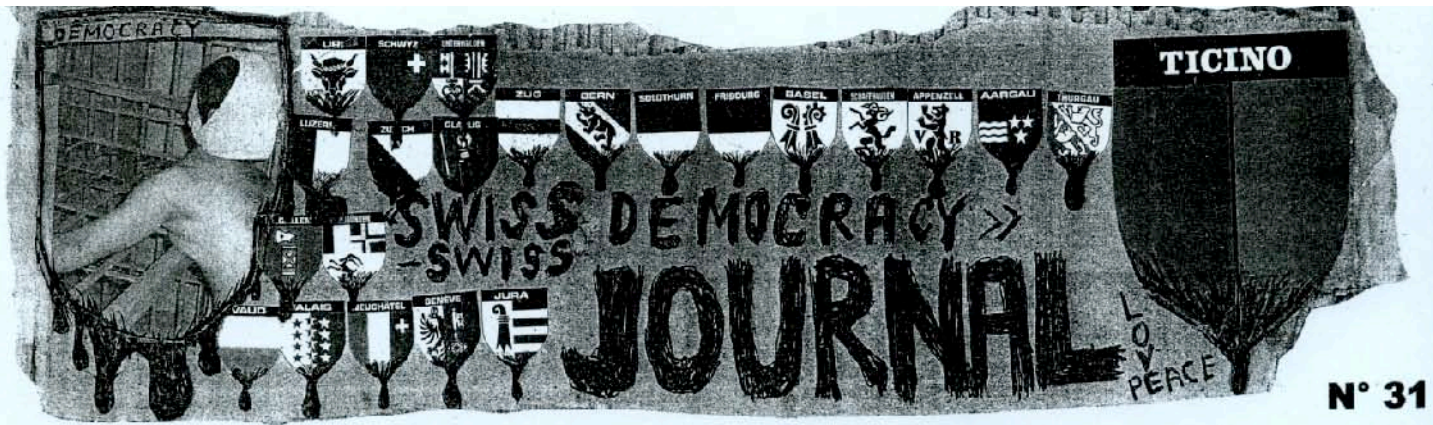 DEMOCRACY
URI
SCHWYZ
UNTERWALDEN
ZUG
BERN
SOLOTHURN
FRIBOURG
BASEL
SCHAFFHAUSEN
APPENZELL
AARGAU
THURGAU
TICINO
LUZERN
ZURICH
GLARUS
V R
«SWISS DEMOCRACY»
-SWISS-
JOURNAL
VAUD
VALAIS
NEUCHÂTEL
GENEVE
JURA
LOVE
PEACE
N° 31